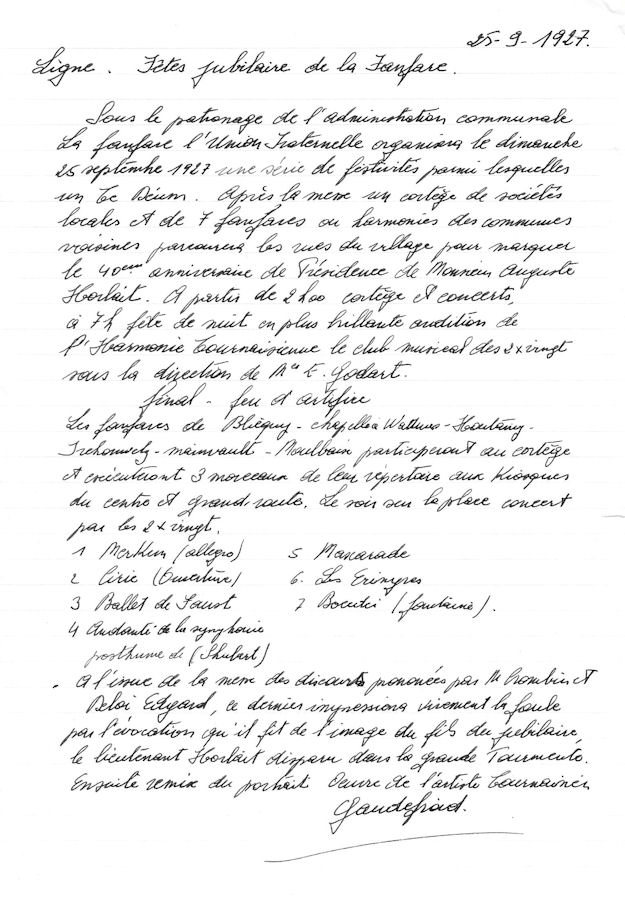 25-9-1927.
Ligne. Fêtes jubilaire de la Fanfare.
Sous le patronage de l'administration communale
La fanfare l'Union Fraternelle organisera le dimanche
25 septembre 1927 une série de festivités parmi lesquelles
un Te Déum. Après la messe un cortège de sociétés
locales et de 7 fanfares ou harmonies des communes
voisines parcourera les rues du village pour marquer
le 40eme anniversaire de Présidence de Monsieur Auguste
Horlait. A partir de 2h00 cortège et concerts,
à 7h fête de nuit en plus brillante audition de
l'Harmonie Tournaisienne le club musical des 2 x vingt
sous la direction de Mr E. Godart.
final - feu d'artifice
Les fanfares de Blicquy - chapelle à Wattines - Houtaing -
- mainvault - Moulbaix participeront au cortège
et exécuteront 3 morceaux de leur répertoire aux Kiosques
du centre et grand-route. Le soir sur la place concert
par les 2 x vingt.
1 (allegro)
2 (Ouverture)
3 Ballet de Faust
4 Andanté de la symphonie
posthume de (Shubart)
5 Mascarade
6. Les Erinnyes
7 (fontaine).
. A l'issue de la messe des discours prononcés par M Crombin et
Deloi Edgard, ce dernier impressiona vivement la foule
par l'évocation qu'il fit de l'image du fils du jubilaire,
le lieutenant Horlait disparu dans la grande Tourmente.
Ensuite remise du portrait Oeuvre de l'artiste tournaisien
Gaudefroid.